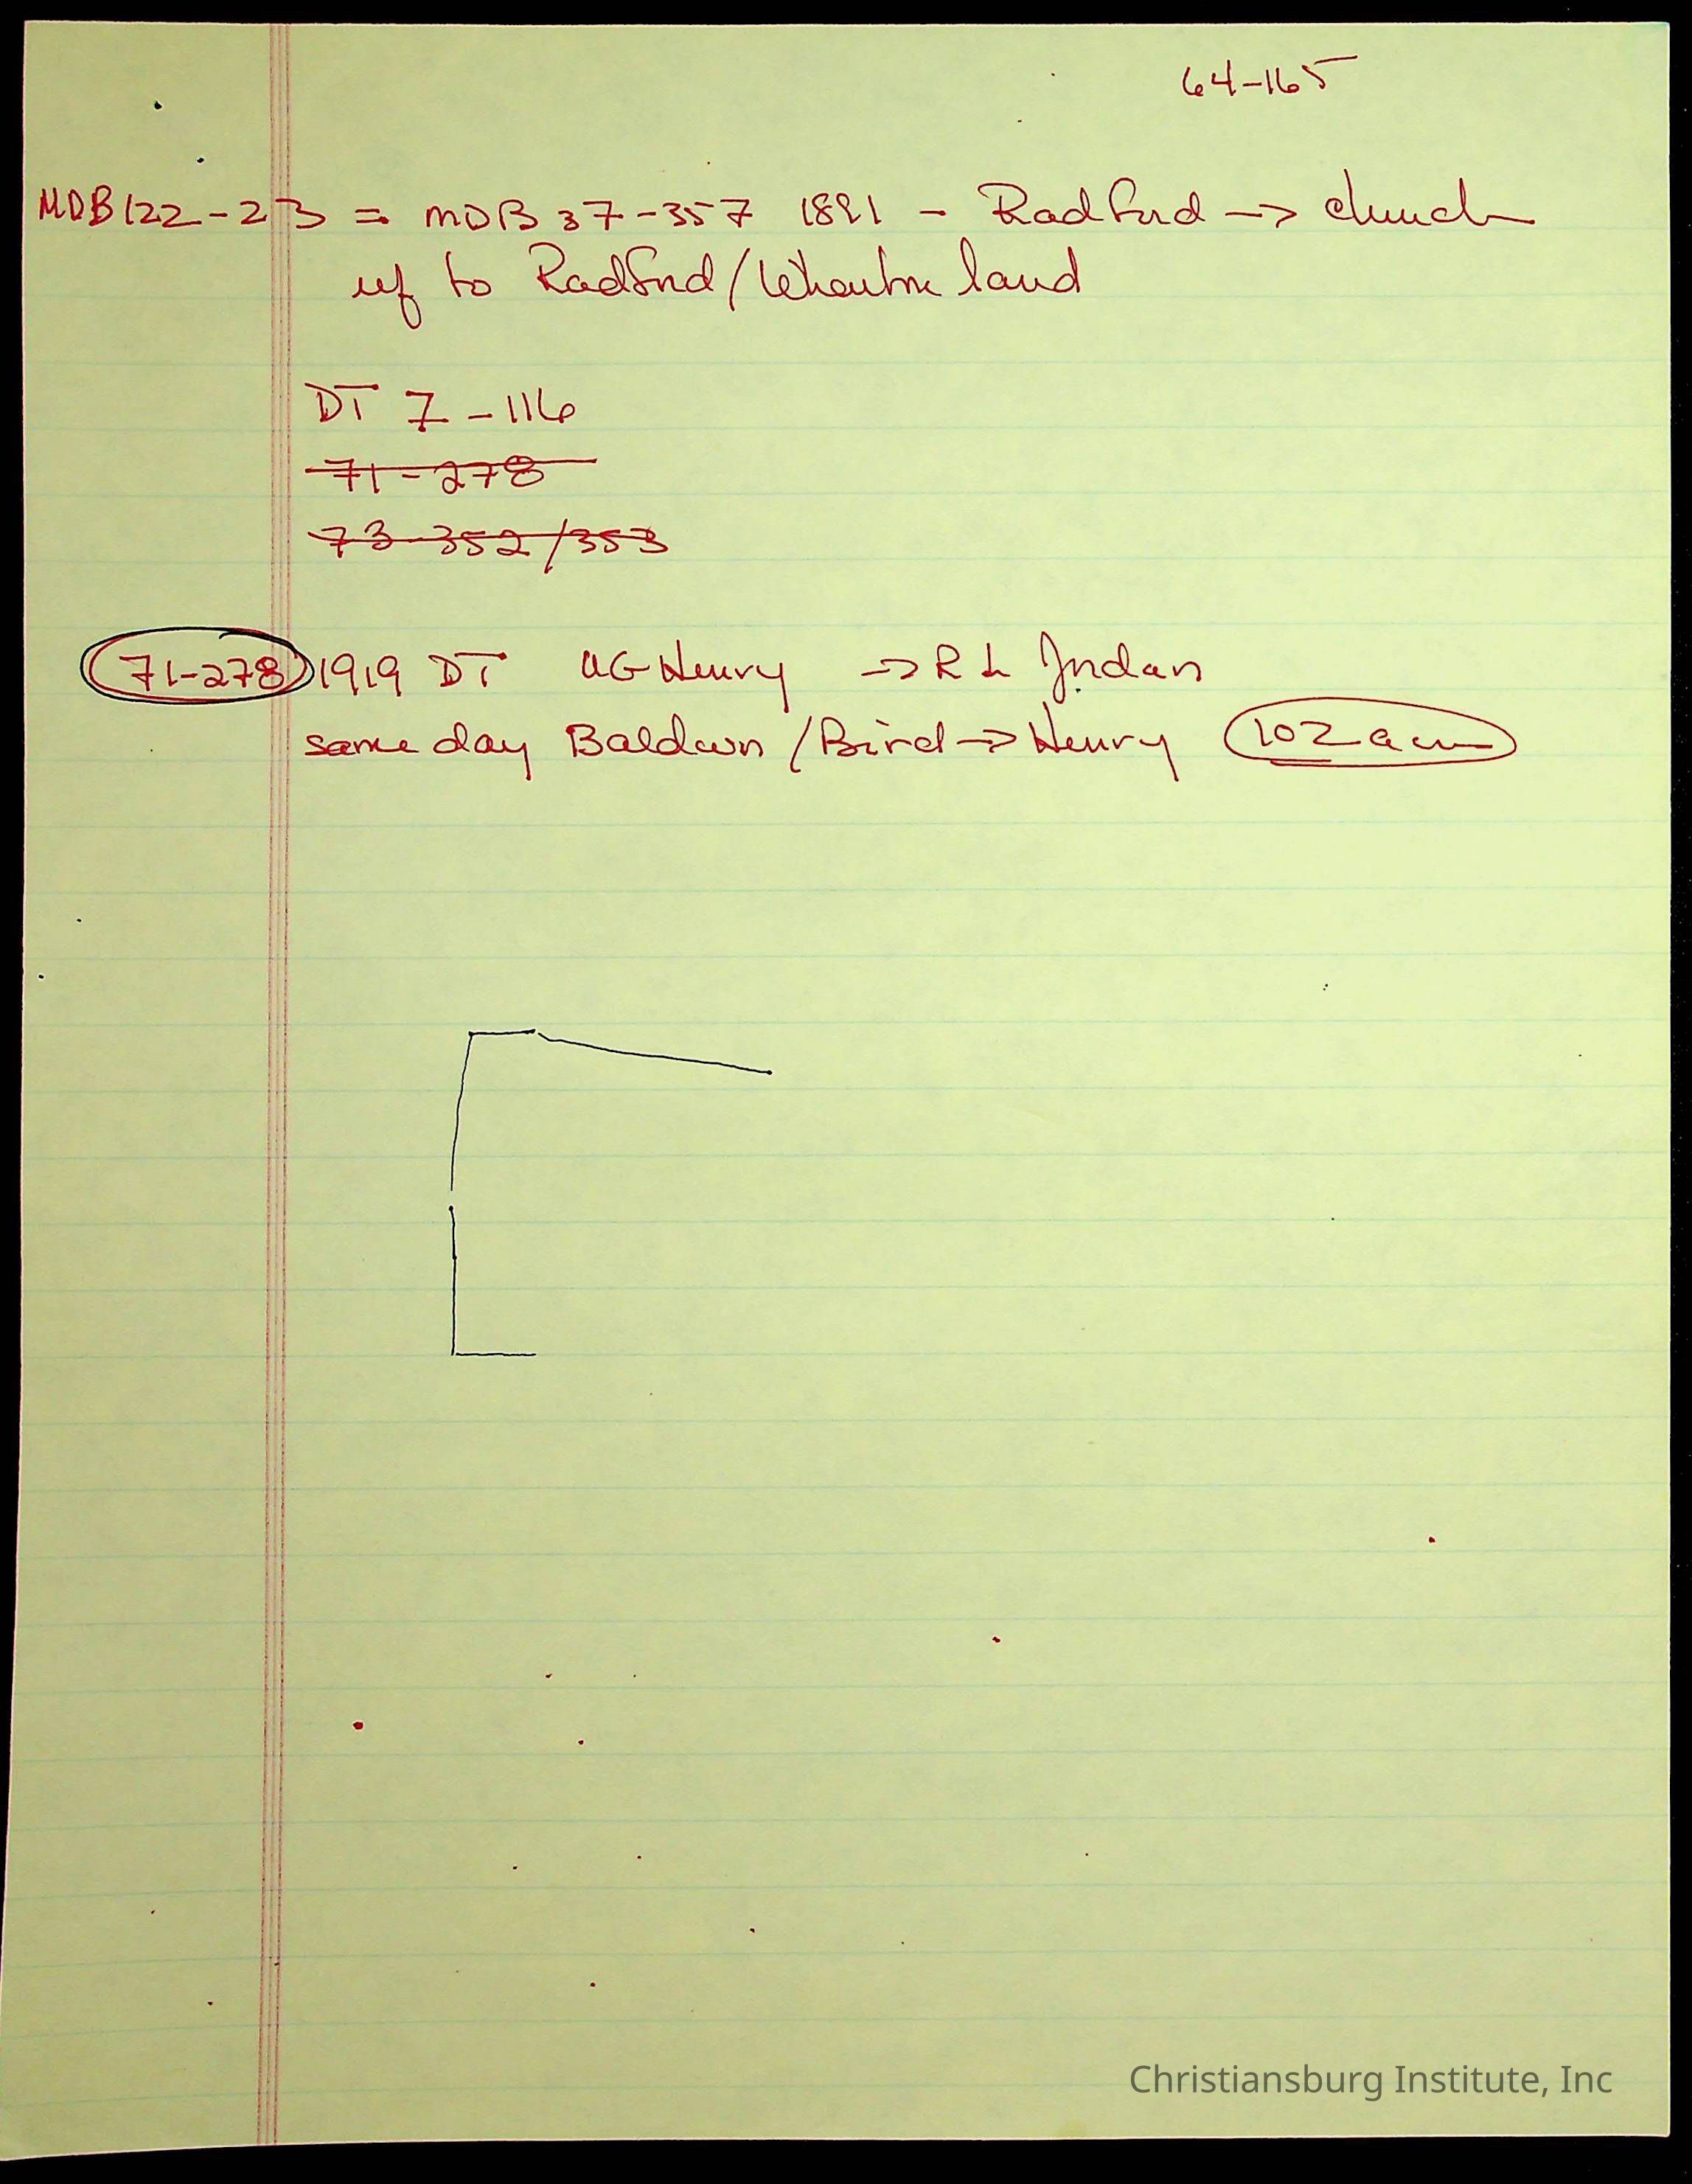 64-165
MDB 122-23 = MDB 37-357 1891 - Radford -> church
ref to Radford/Wharton land
DT 7-116
71-278
73-352/353
71-278 1919 DT UG Henry -> R L Jordan
same day Baldwin / Bird -> Henry 102 acres
Christiansburg Institute, Inc